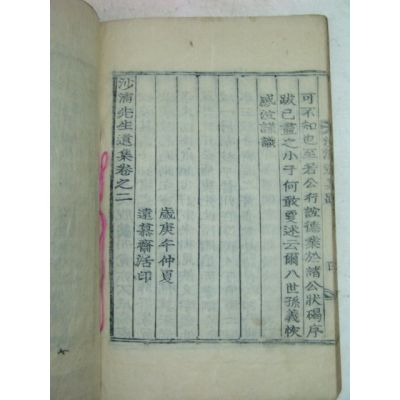 可不知也至若公行誼德業於諸公狀碣序
跋已盡之小子何敢更迷云爾八世孫義恢
感泣謹識
歲庚午仲夏
遠慕齋活印
沙浦先生遺集卷之二